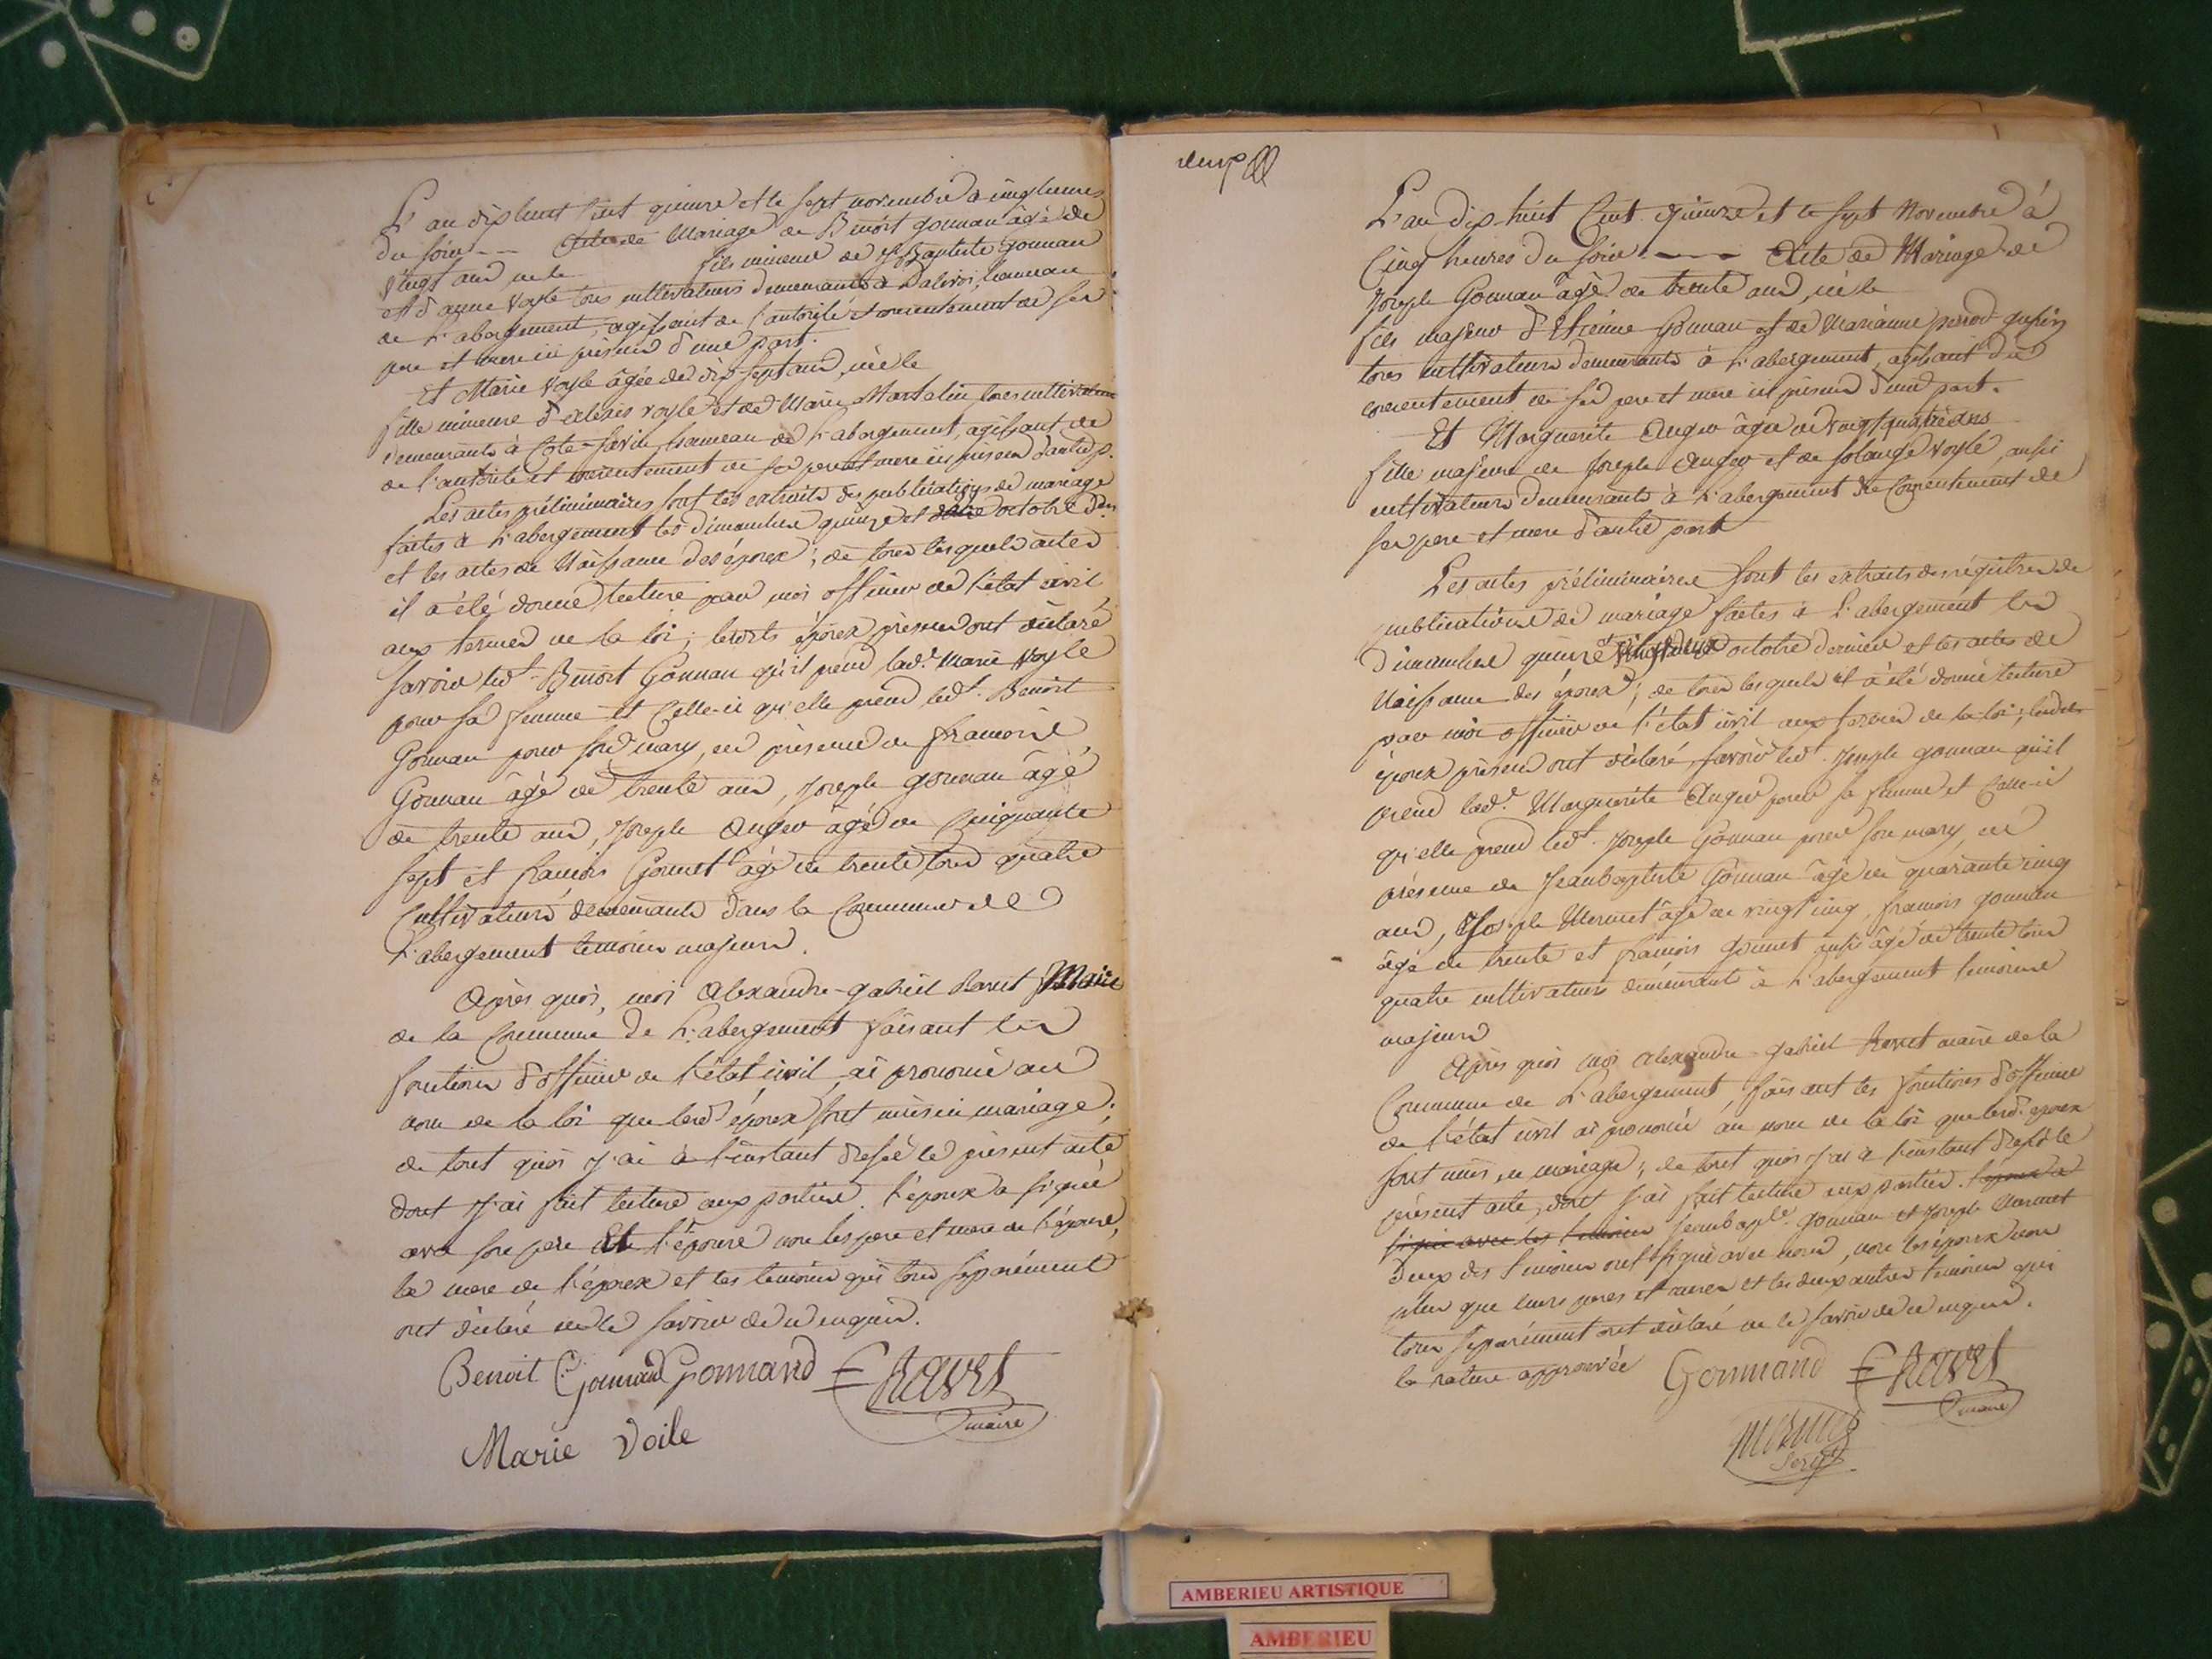 L'an dix huit cent quinze et le sept novembre à cinq heures
du soir --- Acte de Mariage de Benoit gonnan âgé de
vingt ans né le fils mineur de Jn Baptiste gonnan
et d'anne Voyle tous cultivateurs demeurants à hameau
de L'abergement, agissant de l'autorité et consentement de ses
pere et mere ici présens d'une part.
Et Marie Voyle âgée de dix sept ans, née le
fille mineure d'alexis voyle et de Marie Martelin tous cultivateurs
demeurants à Cote-Savin hameau de L'abergement, agissant de
de l'autorité et consentement de ses pere et mere ici présens d'autre p.
Les actes préliminaires sont les extraits des publications de mariage
faites à L'abergement les dimanches quinze et octobre der
et les actes de Naissance des époux ; de tous lesquels actes
il a été donné lecture par moi officier de l'état civil
aux termes de la loi ; lesdits époux présens ont déclaré
savoir ledt Benoit Gonnan qu'il prend lade Marie Voyle
pour sa femme et Celle-ci qu'elle prend ledt Benoit
Gonnan pour son mary, en présence de francois
Gonnan âgé de trente ans, Joseph gonnan âgé
de trente ans, Joseph Auger âgé de Cinquante
sept et francois Gonnet âgé de trente tous quatre
Cultivateurs demeurants dans la Commune de
L'abergement temoins majeurs.
Après quoi, moi Alexandre-gabriel Ravet Maire
de la Commune de L'abergement faisant les
fonctions d'officier de l'état civil, ai prononcé au
nom de la loi que lesd époux sont unis en mariage ;
de tout quoi J'ai à l'instant dressé le présent acte
dont J'ai fait lecture aux parties. l'époux a signé
avec son pere Et l'épouse non les pere et mere de l'épouse,
la mere de l'époux et les temoins qui tous séparément
ont déclaré ne le savoir de ce enquis.
Benoit Gonnand Gonnand Ravet
maire
Marie Voile
deux
L'an dix-huit Cent quinze et le sept Novembre à
Cinq heures du soir. --- Acte de Mariage de
Joseph Gonnan âgé de trente ans, né le
fils majeur d'Etienne Gonnan et de Marianne perrod
tous cultivateurs demeurants à L'abergement, agissant du
consentement de ses pere et mere ici présens d'une part.
Et Marguerite Auger âgée de vingt quatre ans
fille majeure de Joseph Auger et de Solange Voyle, aussi
cultivateurs demeurants à L'abergement de Consentement de
ses pere et mere d'autre part
Les actes préliminaires sont les extraits des régitres de
publications de mariage faites à L'abergement les
dimanches quinze et vingt deux octobre dernier et les actes de
Naissance des époux ; de tous lesquels il a été donné lecture
par moi officier de l'état civil aux termes de la loi ; lesdits
époux présens ont déclaré, savoir ledt Joseph gonnan qu'il
prend lade Marguerite Auger pour sa femme et Celle-ci
qu'elle prend ledt Joseph Gonnan pour son mary, en
présence de Jeanbaptiste Gonnan âgé de quarante cinq
ans, Joseph Mermet âgé de vingt cinq, francois gonnan
âgé de trente et francois gonnet aussi âgé de trente tous
quatre cultivateurs demeurants à L'abergement temoins
majeurs
Après quoi moi Alexandre-gabriel Ravet maire de la
Commune de L'abergement, faisant les fonctions d'officier
de l'état civil ai prononcé au nom de la loi que lesds epoux
sont unis en mariage ; de tout quoi J'ai à l'instant dressé le
présent acte, dont J'ai fait lecture aux parties. l'époux a
signé avec les temoins Jeanbaple Gonnan et Joseph Mermet
deux des temoins ont signé avec nous, non les époux non
plus que leurs peres et meres et les deux autres temoins qui
tous séparément ont déclaré ne le savoir de ce enquis.
la rature approuvée Gonnand Ravet
maire
AMBERIEU ARTISTIQUE
AMBERIEU